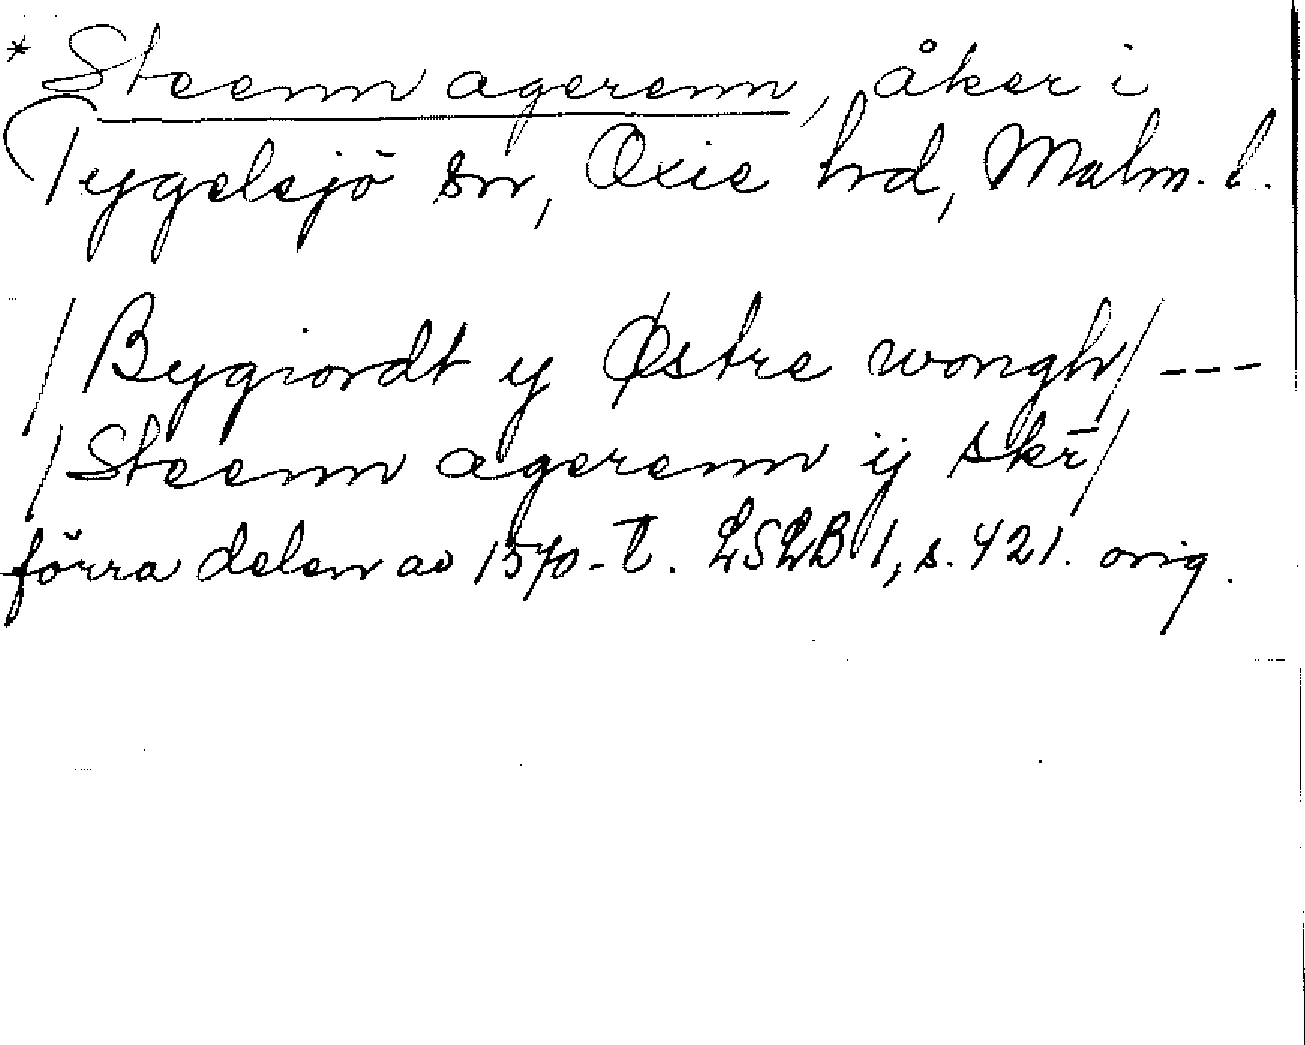 * Steenn agerenn, åker i
Tygelsjö sn, Oxie hd, Malm. l.
/Bygiordt y Østre wongh/ ---
/Steenn agerenn ij skr̄/
förra delen av 1570-t. LSLB 1, s. 421. orig.